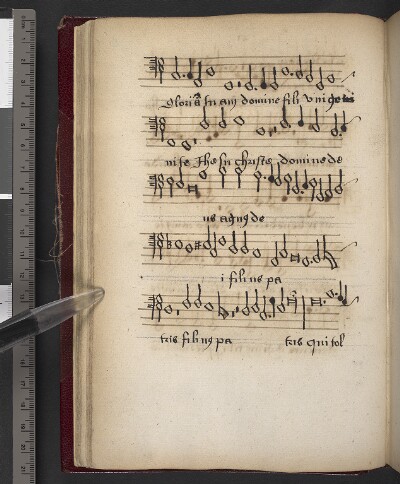 gloriā tu am domine fili vni ge
nite Jhesu christe domine de
us agnꝯ de
i filius pa
tris filiꝯ pa tris qui tol